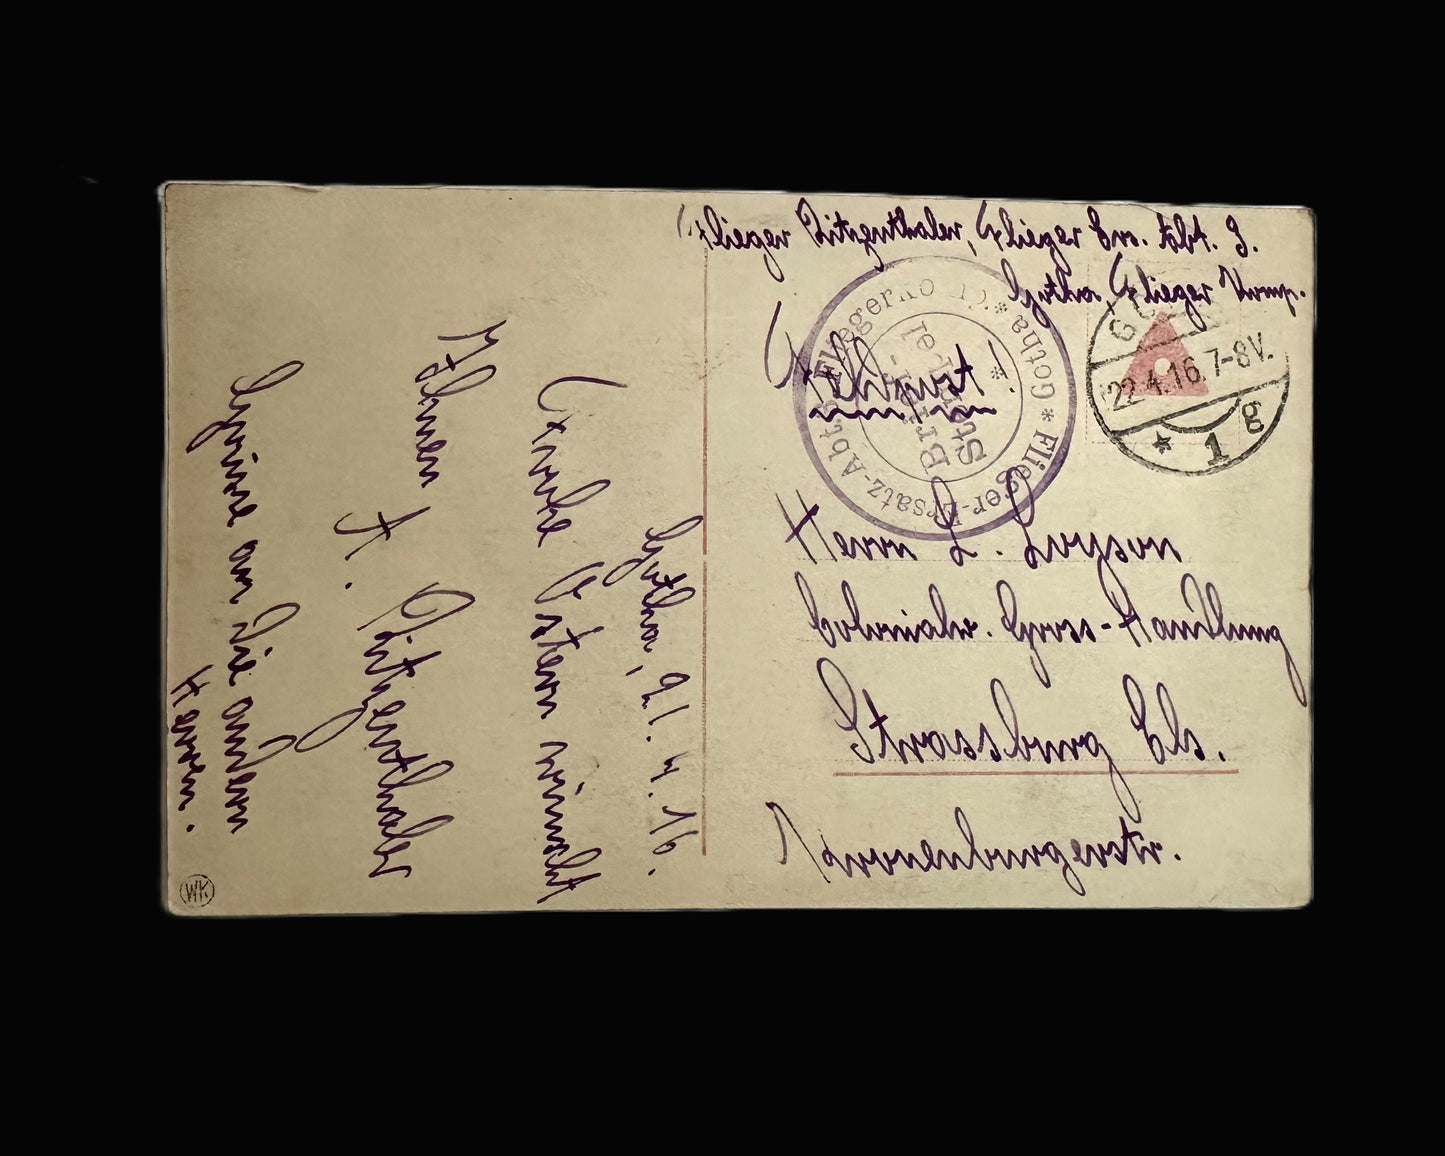 Flieger Pfitzenthaler, Flieger Ers. Abt. 3.
Gotha, Flieger Komp.
Feldpost
Fliegerkomp. * Gotha * Flieger-Ersatz-Abt. 3
Briefstempel
22.4.16.7-8V.
* 1 g
Herrn L.
Colonialw. Gross-Handlung
Strassburg Els.
Gotha, 21.4.16.
Frohe Ostern wünscht
Ihnen A. Pfitzenthaler
Grüsse an die andern
Herren.
WK